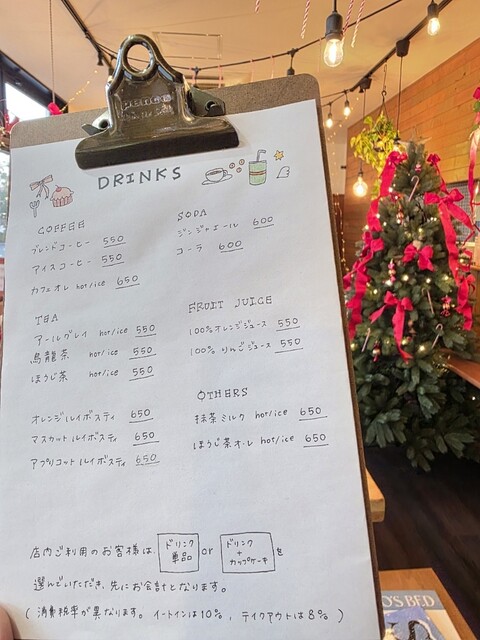 DRINKS
COFFEE
ブレンドコーヒー 550
アイスコーヒー 550
カフェオレ hot/ice 650
TEA
アールグレイ hot/ice 550
烏龍茶 hot/ice 550
ほうじ茶 hot/ice 550
オレンジルイボスティ 650
マスカットルイボスティ 650
アプリコットルイボスティ 650
SODA
ジンジャエール 600
コーラ 600
FRUIT JUICE
100%オレンジジュース 550
100%りんごジュース 550
OTHERS
抹茶ミルク hot/ice 650
ほうじ茶オーレ hot/ice 650
店内ご利用のお客様は、ドリンク単品 or ドリンク+カップケーキ を
選んでいただき、先にお会計となります。
(消費税率が異なります。イートインは10%、テイクアウトは8%)
O'S BED